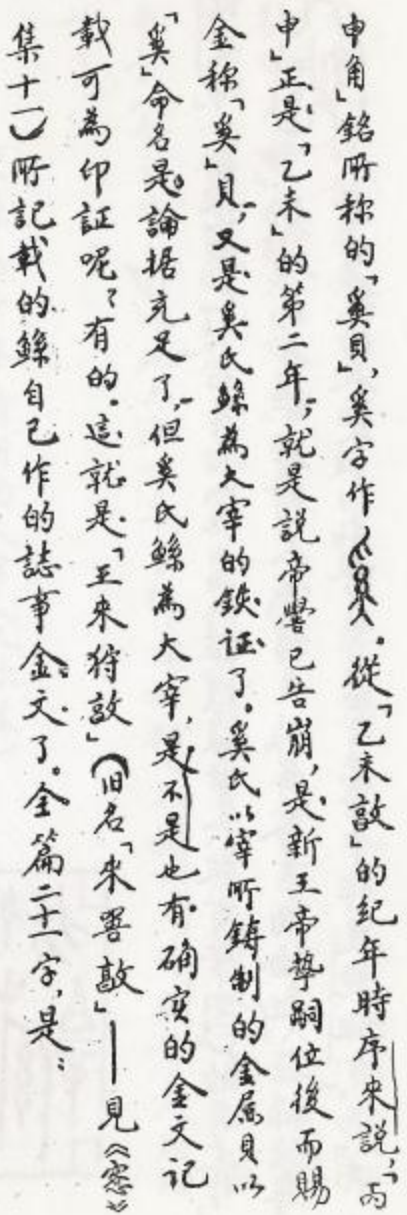 申角」銘所称的「奚貝」，奚字作。從「乙未敦」的纪年時序來説，「丙
申」正是「乙未」的第二年，就是説帝嚳已告崩，是新王帝摯嗣位後而賜
金称「奚」貝，又是奚氏鯀為大宰的鉄证了。奚氏以宰所鋳制的金属貝以
「奚」命名是論据充足了，但奚氏鯀為大宰，是不是也有确实的金文记
載可為印証呢？有的。這就是「王來狩敦」（旧名「來獸敦」——見《窓
集十一）所記載的鯀自己作的誌事金文了。全篇二十一字，是：